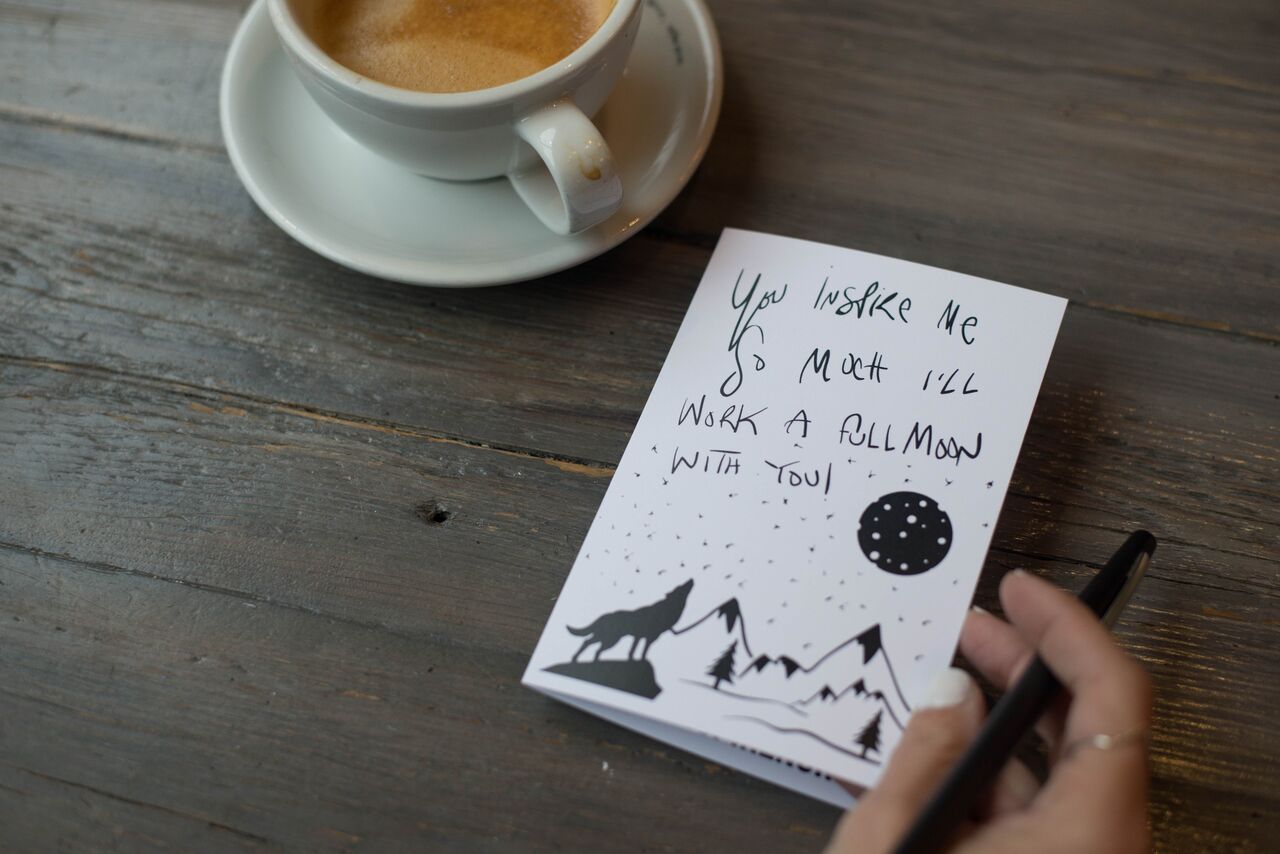 You INSPIRE Me
So MUCH I'LL
WORK A FULL MOON
WITH YOU!